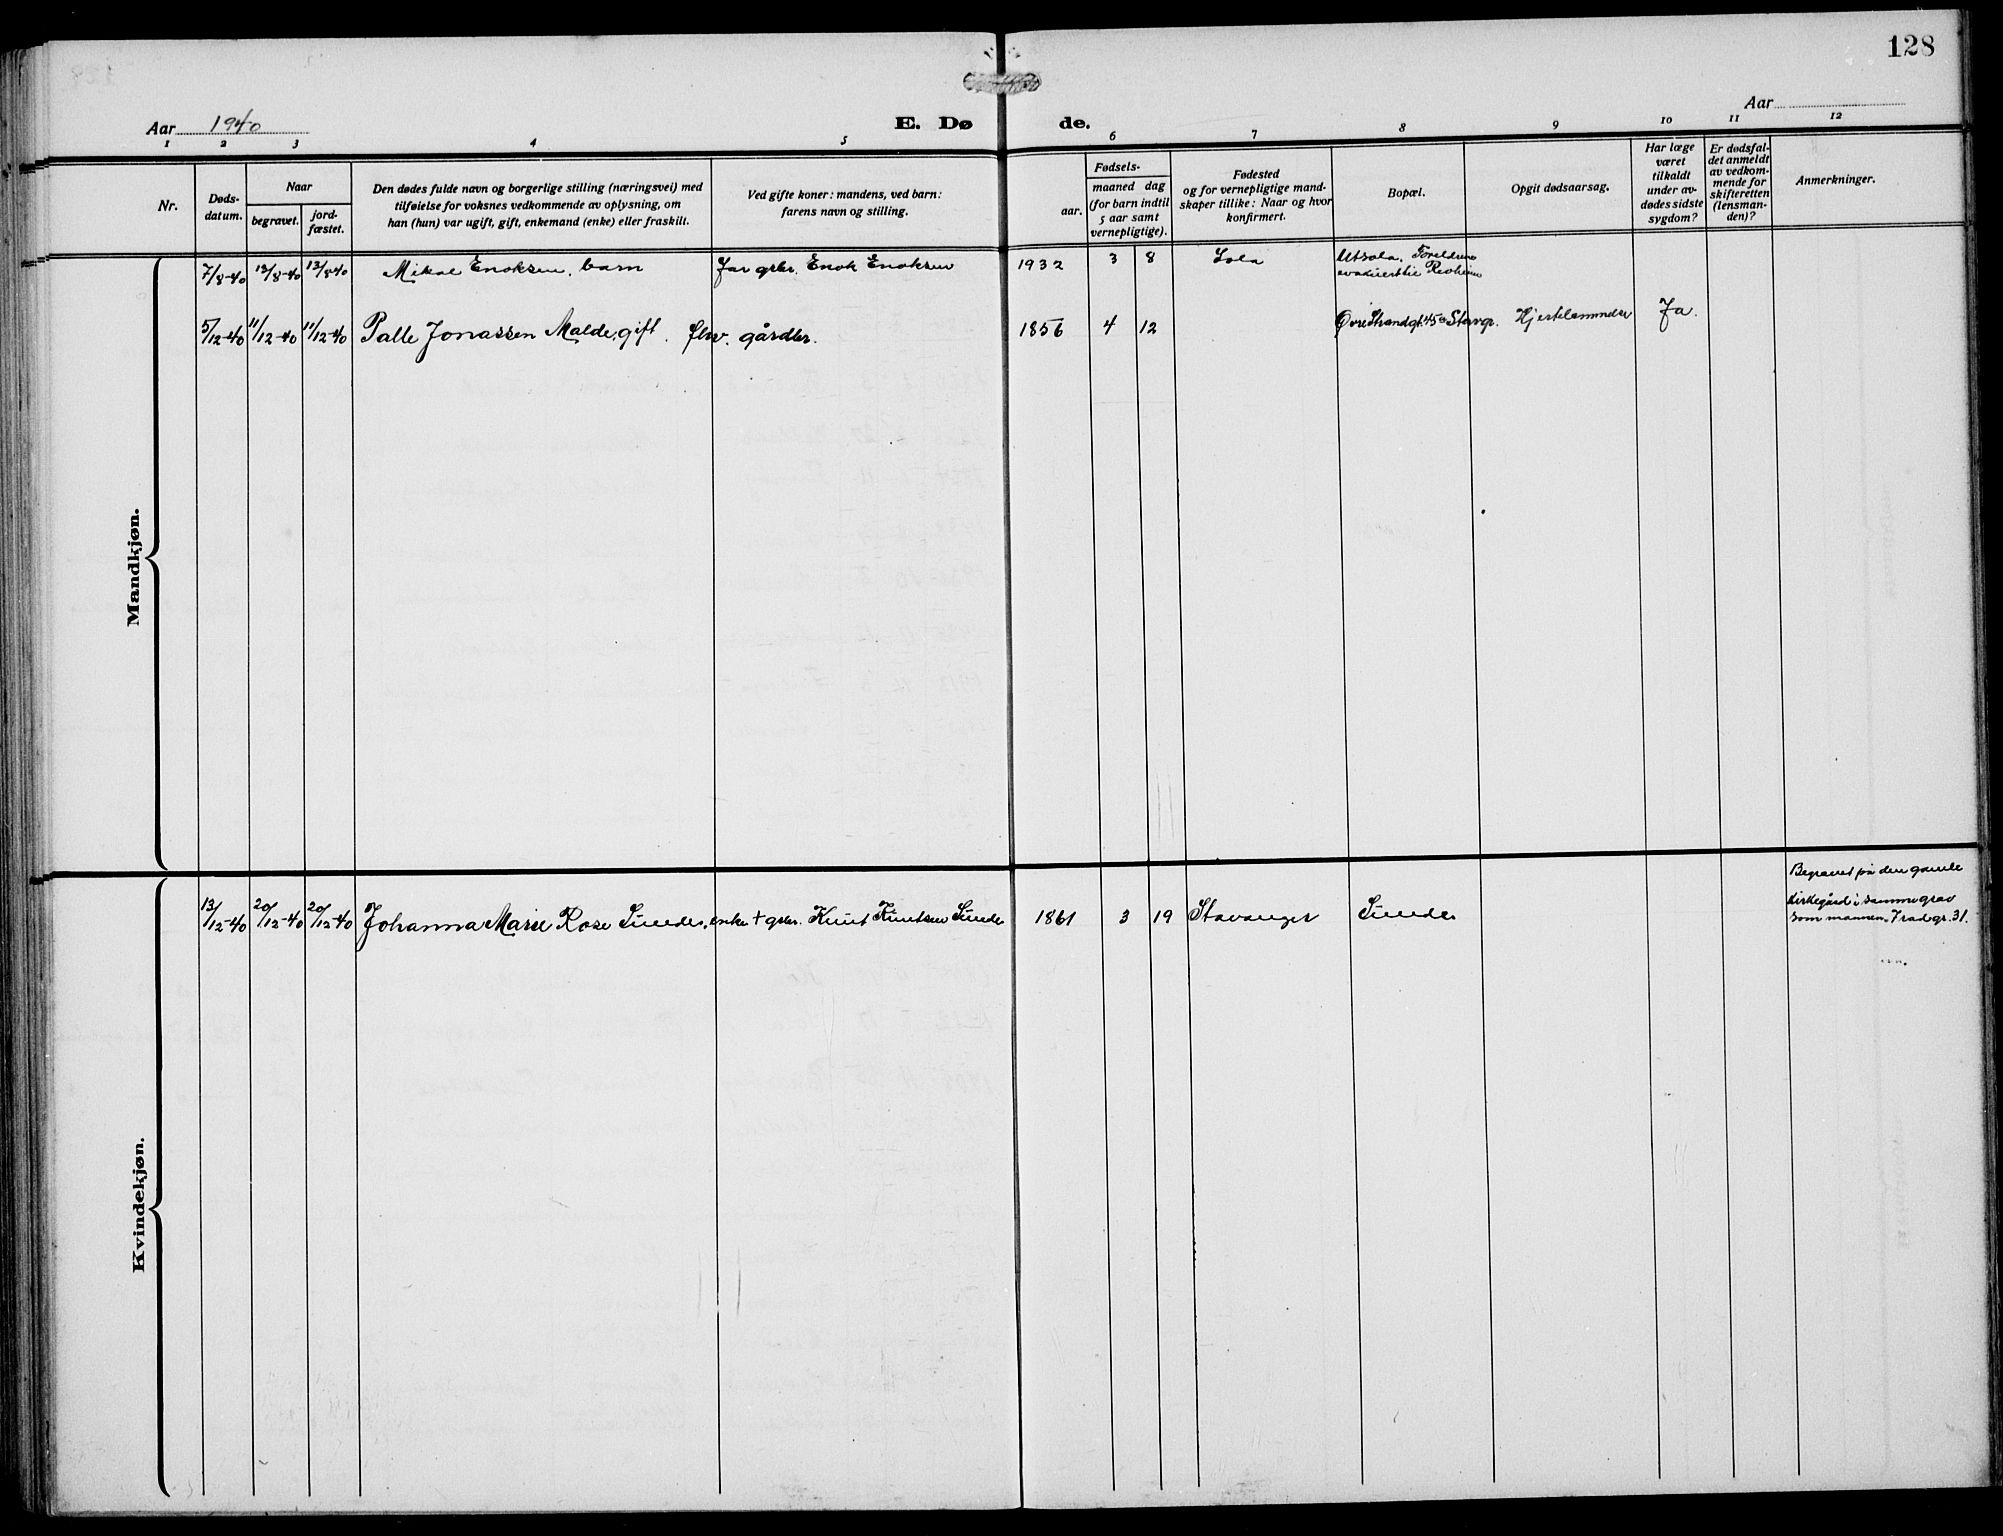 128
Aar 1940
E. Dø de.
Aar
1 2 3 4 5 6 7 8 9 10 11 12
Nr.
Døds-
datum.
Naar
begravet.
jord-
fæstet.
Den dødes fulde navn og borgerlige stilling (næringsvei) med
tilføielse for voksnes vedkommende av oplysning, om
han (hun) var ugift, gift, enkemand (enke) eller fraskilt.
Ved gifte koner: mandens, ved barn:
farens navn og stilling.
Fødsels-
aar.
maaned dag
(for barn indtil
5 aar samt
vernepligtige).
Fødested
og for vernepligtige mand-
skaper tillike: Naar og hvor
konfirmert.
Bopæl.
Opgit dødsaarsag.
Har læge
været
tilkaldt
under av-
dødes sidste
sygdom?
Er dødsfal-
det anmeldt
av vedkom-
mende for
skifteretten
(lensman-
den)?
Anmerkninger.
Mandkjøn.
7/8-40 13/8-40 13/8-40 Mikal Enoksen, barn Far gbr. Enok Enoksen 1932 3 8 Sola Utsola. Foreldrene
evakuert til Revheim
5/12-40 11/12-40 11/12-40 Palle Jonassen Malde, gift. fhv. gårdbr. 1856 4 12 Øvre Strandgt. 45 a Stavgr. Hjertelammelse Ja.
Kvindekjøn.
13/12-40 20/12-40 20/12-40 Johanna Marie Rose Sunde, enke + gbr. Knut Knutsen Sunde 1861 3 19 Stavanger Sunde
Begravet på den gamle
kirkegård i samme grav
som mannen. 7 rad gr. 31.